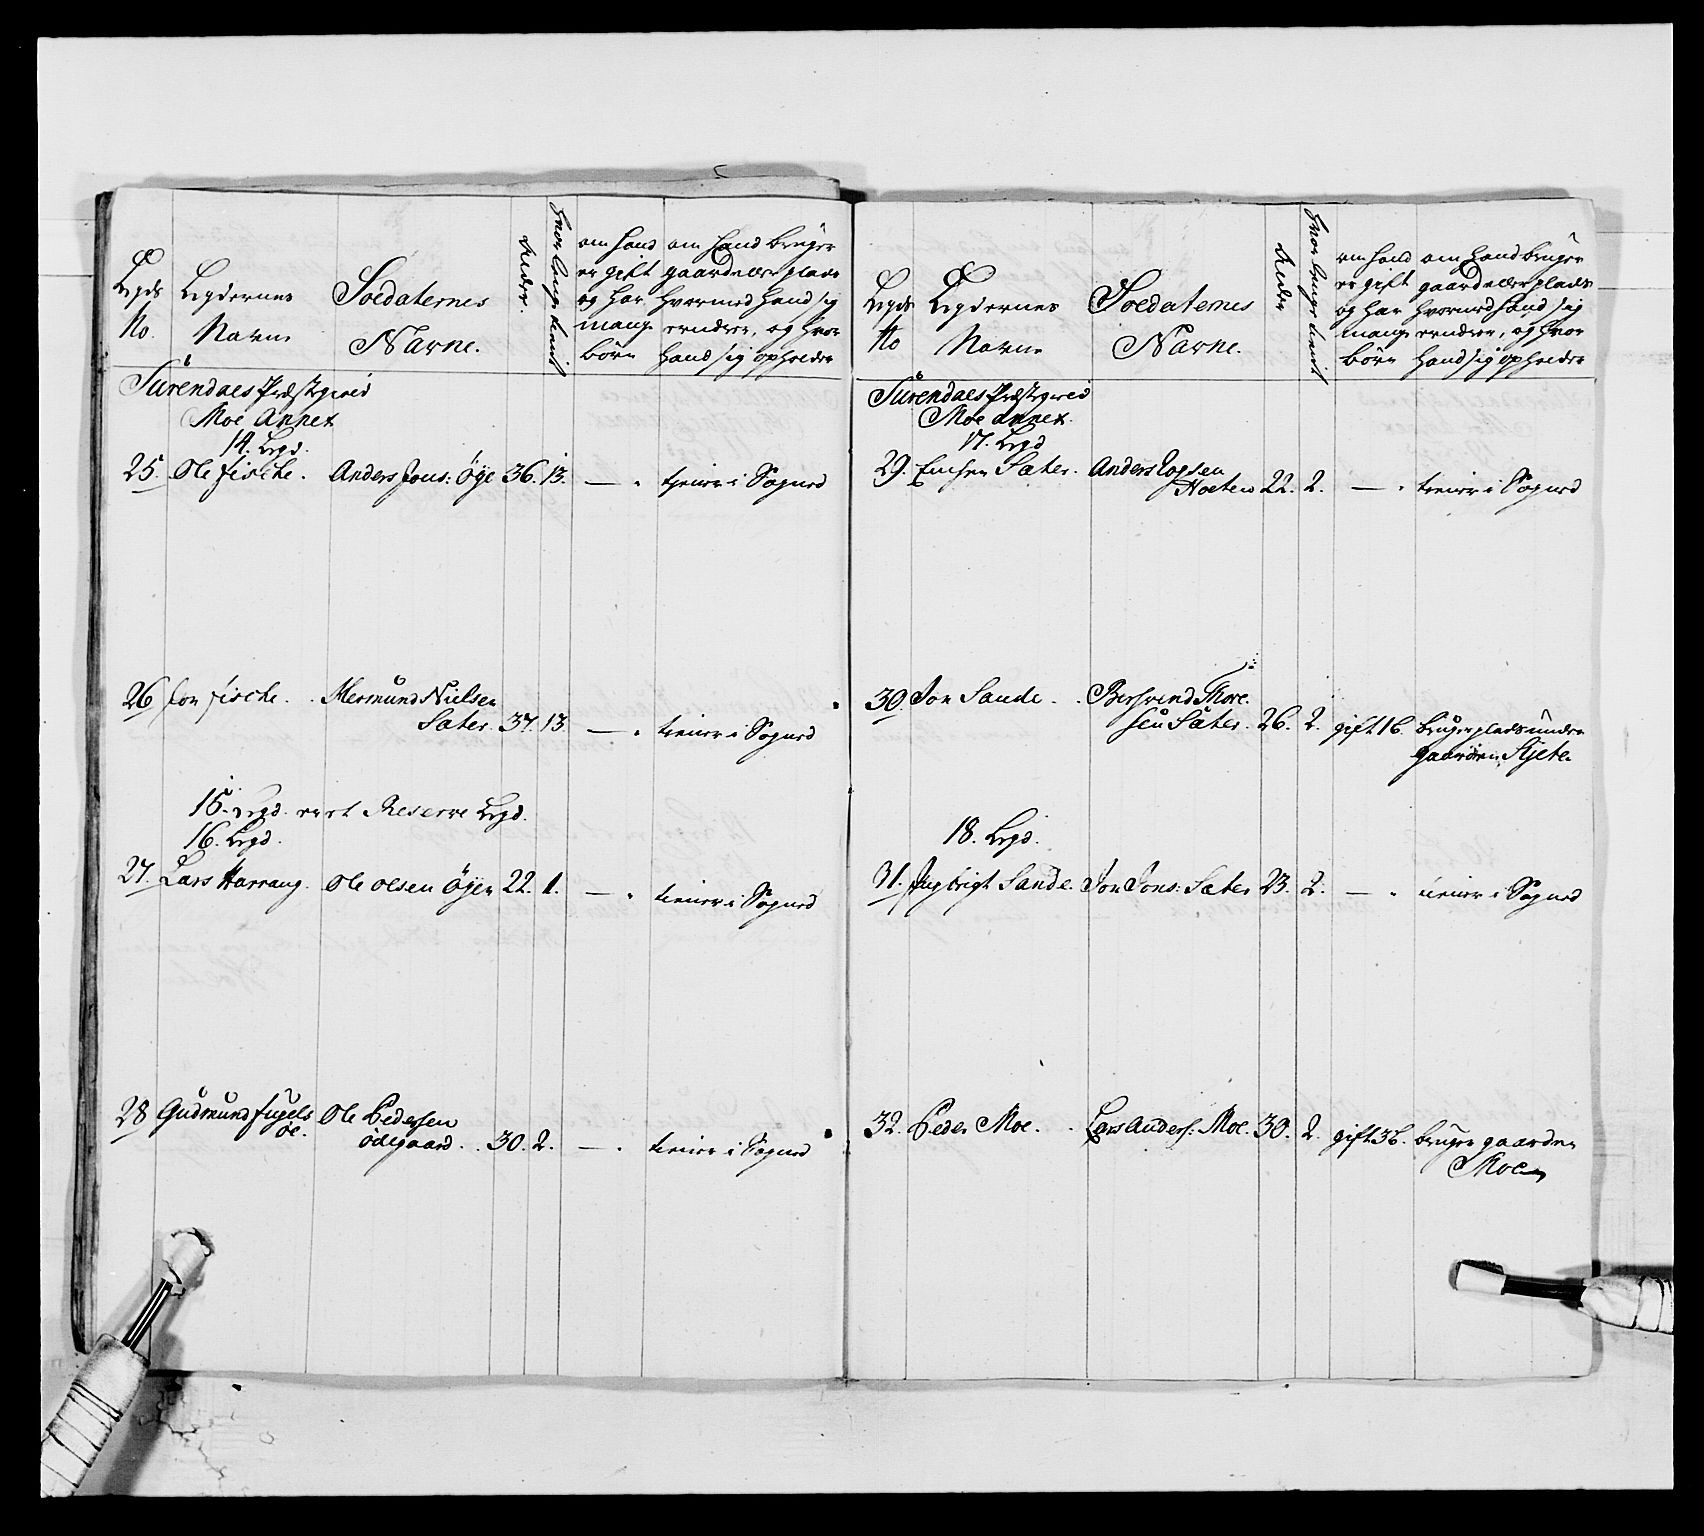 Legds
No.
Legdernes
Navne
Soldaternes
Navne.
Alder.
hvor lenge tient
om hand
er gift
og har
mange
börn
om hand bruger
gaard eller plads
hvormed hand sig
ernærer, og hvor
hand sig opholder
Surendals Præstegield
Moe Annex
14. Legd.
25. Ole fiske. Anders Jons: Øye 36. 13. — . tjener i Sogned
26 Jon fiske. Mermund Nielsen
Sæter. 37. 13. — . tiener i Sogned
15. Legd. er et Reserve Legd.
16. Legd.
27. Lars Harrang. Ole Olsen Øyen 22. 1. — . tiener i Sogned
28 Gudmund fugels
øe. Ole Pedersen
ødegaard. 30. 2. — . tiener i Sogned
Legds
No
Legdernes
Navne
Soldaternes
Navne.
Alder
hvor lenge tient
om hand
er gift
og har
mange
börn
om hand bruger
gaard eller plads
hvormed hand sig
ernærer, og hvor
hand sig opholder
Surendals Præstegield
Moe annex.
17. Legd
29. Sæter. Anders
Holten 22. 2. — . tiener i Sogned
30. Jon Sande. Bersvend Thore
sen Sæter. 26. 2. gift 1 b. bruger plads under
gaarden
18. Legd.
31. Ingbrigt Sande. Jon Jons: Sæter 23. 2. — . tiener i Sogned
32. Peder Moe. Lars Anders: Moe. 30. 2. gift 3 b. bruger gaarden
Moe